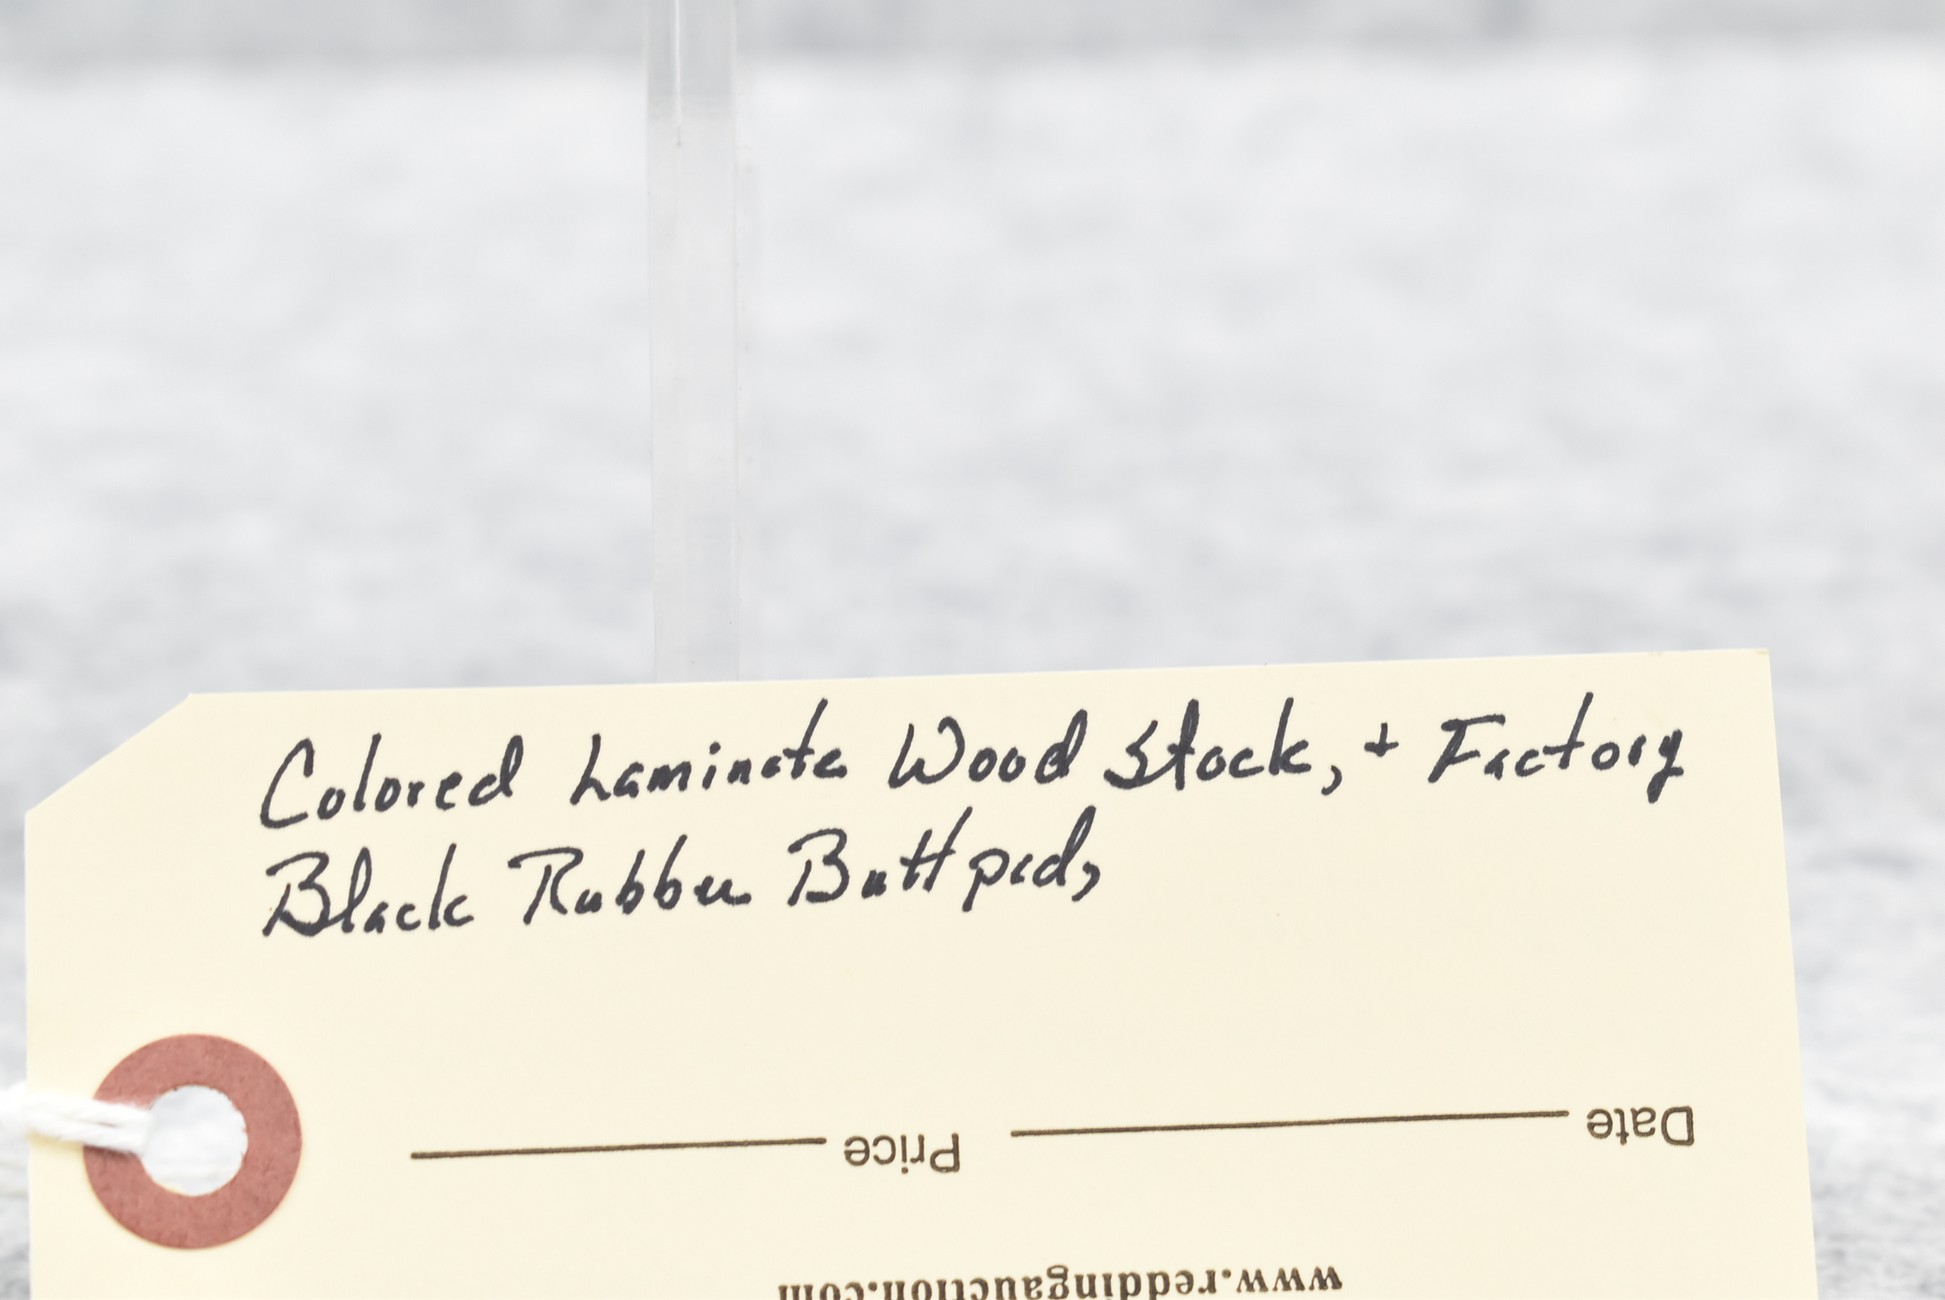 Colored Laminate Wood Stock, + Factory
Black Rubber Buttpad,
Date Price
www.reddingauction.com